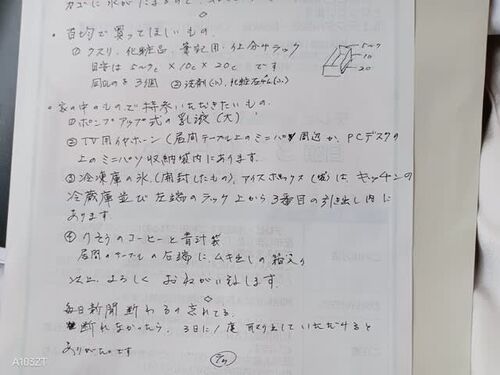 カゴに氷が
◇
・百均で買ってほしいもの.
①クスリ、化粧品、筆記用、仕分ラック
目安は5〜7c × 10c × 20c です
を3個 ②洗剤(小)、化粧石けん(小.)
5〜7c
10
20
・家の中のもので持参いただきたいもの.
①ポンプアップ式の乳液(大)
②TV用イヤホーン(居間テーブル上のミニバッ周辺か、PCデスクの
上のミニバッ収納域内にあります.
③冷凍庫の氷(開封したもの)、アイスボックス()は、キッチンの
冷蔵庫並び左端のラック上から3番目の引き出し内に
あります.
④のコーヒーと青汁袋
居間のテーブルの右端に、ムキ出しの箱入り
以上、よろしくおねがいします.
◇
毎日新聞断わるの忘れてる.
断れなかったら、3日に1度取り出していただけると
ありがたいです
A103ZT